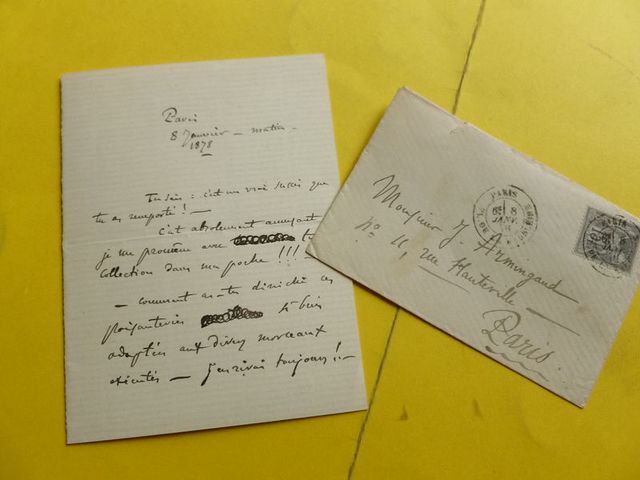 Paris
8 Janvier – matin –
1878
Tu sais : c'est un vrai succès que
tu as remporté ! –
c'est absolument amusant
je me promène avec
collection dans ma poche !!!
– comment as-tu déniché ces
plaisanteries si bien
adaptées aux divers morceaux
exécutés – J'en rirai toujours ! –
PARIS
8
JANV
Monsieur J. Armingaud
No 11, rue Hauteville
Paris